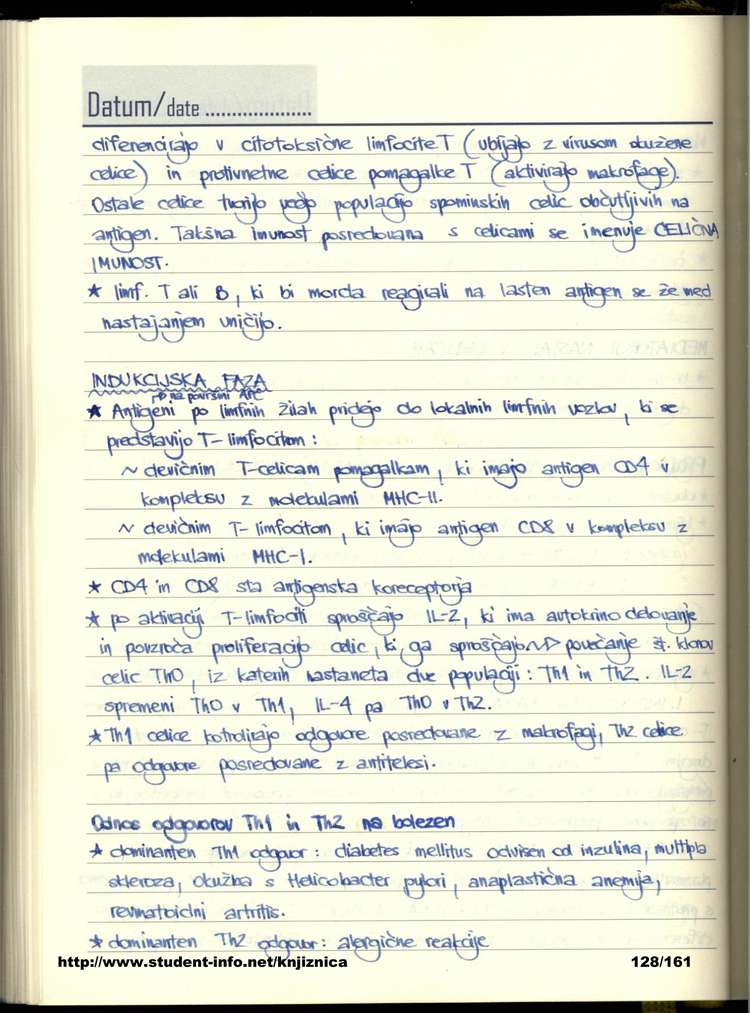 Datum/date ....................
diferencirajo v citotoksične limfocite T (ubijajo z virusom okužene
celice) in protivnetne celice pomagalke T (aktivirajo makrofage).
Ostale celice tvorijo večjo populacijo spominskih celic občutljivih na
antigen. Takšna imunost posredovana s celicami se imenuje CELIČNA
IMUNOST.
* limf. T ali B, ki bi morda reagirali na lasten antigen se že med
nastajanjem uničijo.
INDUKCIJSKA FAZA
na površini APC
* Antigeni po limfnih žilah pridejo do lokalnih limfnih vozlov, ki se
predstavijo T-limfocitom:
~ devičnim T-celicam pomagalkam, ki imajo antigen CD4 v
kompleksu z molekulami MHC-II.
~ devičnim T-limfocitom, ki imajo antigen CD8 v kompleksu z
molekulami MHC-I.
* CD4 in CD8 sta antigenska koreceptorja
* po aktivaciji T-limfociti sproščajo IL-2, ki ima avtokrino delovanje
in povzroča proliferacijo celic, ki ga sproščajo ~> povečanje št. klonov
celic Th0, iz katerih nastaneta dve populaciji: Th1 in Th2. IL-2
spremeni Th0 v Th1, IL-4 pa Th0 v Th2.
* Th1 celice kotrolirajo odgovore posredovane z makrofagi, Th2 celice
pa odgovore posredovane z antitelesi.
Odnos odgovorov Th1 in Th2 na bolezen
* dominanten Th1 odgovor: diabetes mellitus odvisen od inzulina, multipla
skleroza, okužba s Helicobacter pylori, anaplastična anemija,
revmatoidni artritis.
* dominanten Th2 odgovor: alergične reakcije
http://www.student-info.net/knjiznica 128/161